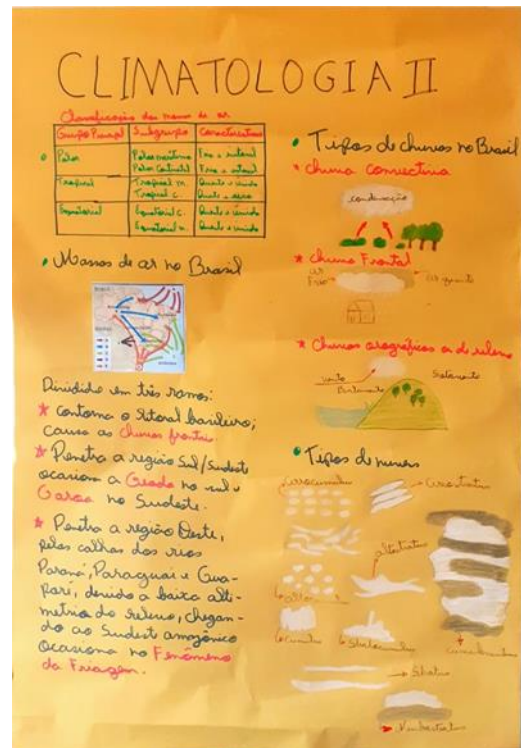 CLIMATOLOGIA II
Classificação das massas de ar
Grupo Principal Subgrupo Características
Polar Polar marítima Fria e instável
Polar Continental Fria e estável
Tropical Tropical m. Quente e úmido
Tropical c. Quente e seco
Equatorial Equatorial c. Quente e úmido
Equatorial m. Quente e úmido
Massas de ar no Brasil
Dividido em três ramos:
contorna o litoral brasileiro;
causa as chuvas frontais.
Penetra a região Sul/Sudeste
ocasiona a Geada no sul e
Garoa no Sudeste.
Penetra a região Oeste,
pelas calhas dos rios
Paraná, Paraguai e Gua-
poré, devido a baixa alti-
metria do relevo, chegan-
do ao Sudeste amazônico
ocasiona no Fenômeno
da Friagem.
Tipos de chuvas no Brasil
chuva convectiva
condensação
chuva Frontal
ar Frio
ar quente
Chuvas orográficas ou de relevo
vento
Barlavento
Sotavento
Tipos de nuvens
Cirrocumulus
Cirrostratus
altostratus
cumulus
Stratocumulus
Stratus
Nimbostratus